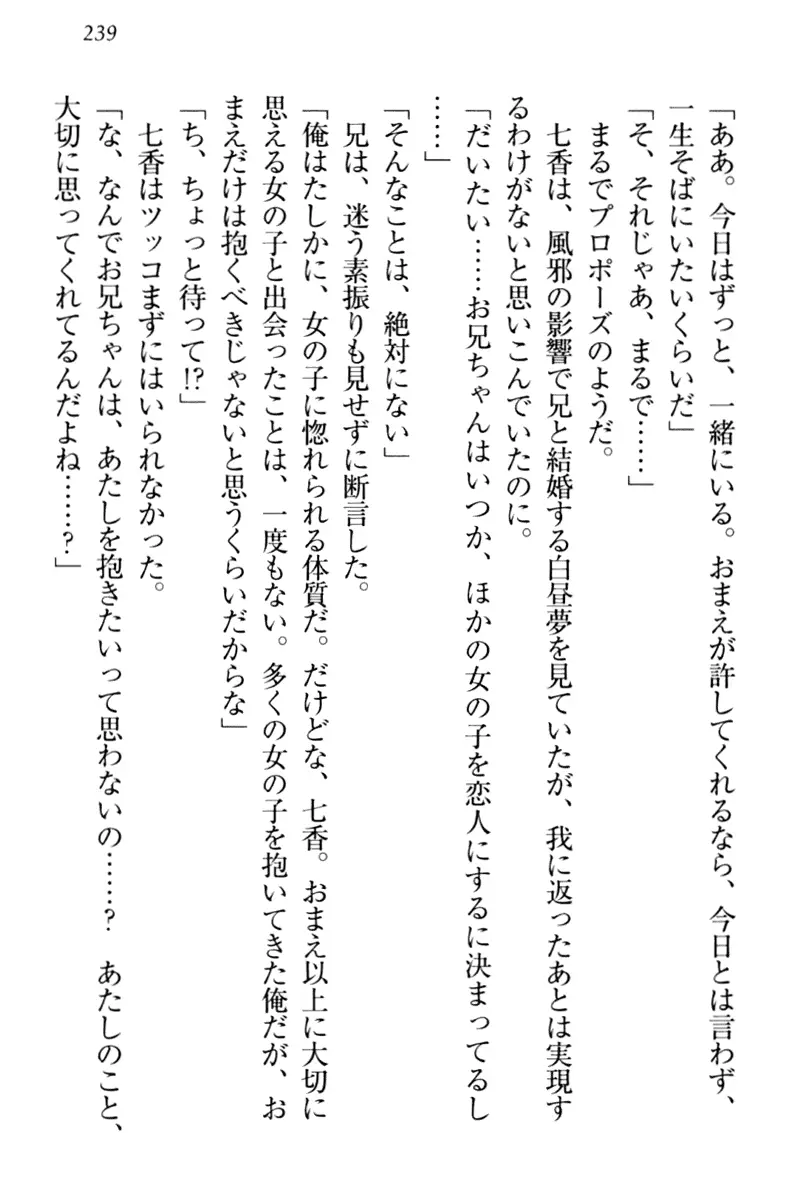 239
「ああ。今日はずっと、一緒にいる。おまえが許してくれるなら、今日とは言わず、
一生そばにいたいくらいだ」
「そ、それじゃあ、まるで……」
まるでプロポーズのようだ。
七香は、風邪の影響で兄と結婚する白昼夢を見ていたが、我に返ったあとは実現す
るわけがないと思いこんでいたのに。
「だいたい……お兄ちゃんはいつか、ほかの女の子を恋人にするに決まってるし
……」
「そんなことは、絶対にない」
兄は、迷う素振りも見せずに断言した。
「俺はたしかに、女の子に惚れられる体質だ。だけどな、七香。おまえ以上に大切に
思える女の子と出会ったことは、一度もない。多くの女の子を抱いてきた俺だが、お
まえだけは抱くべきじゃないと思うくらいだからな」
「ち、ちょっと待って!?」
七香はツッコまずにはいられなかった。
「な、なんでお兄ちゃんは、あたしを抱きたいって思わないの……? あたしのこと、
大切に思ってくれてるんだよね……?」